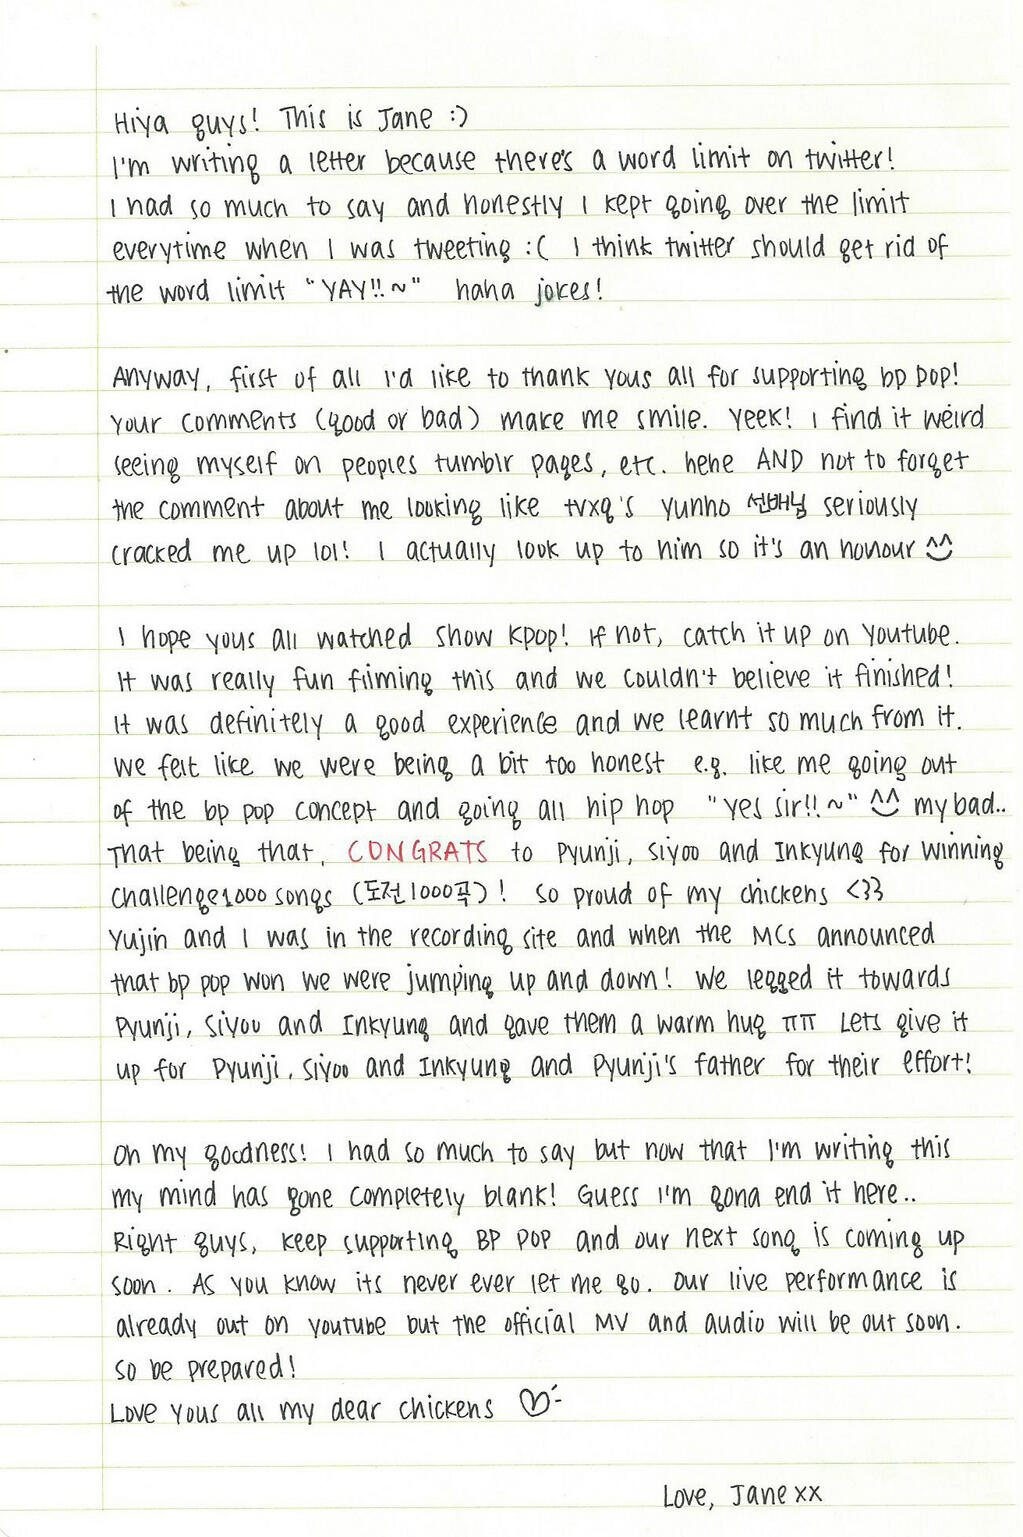 Hiya guys! This is Jane :)
I'm writing a letter because there's a word limit on twitter!
I had so much to say and honestly I kept going over the limit
everytime when I was tweeting :( I think twitter should get rid of
the word limit "YAY!!~" haha jokes!
Anyway, first of all I'd like to thank yous all for supporting bp pop!
Your comments (good or bad) make me smile. Yeek! I find it weird
seeing myself on peoples tumblr pages, etc. hehe AND not to forget
the comment about me looking like tvxq's yunho 선배님 seriously
cracked me up lol! I actually look up to him so it's an honour ^^
I hope yous all watched show kpop! If not, catch it up on youtube.
It was really fun filming this and we couldn't believe it finished!
It was definitely a good experience and we learnt so much from it.
We felt like we were being a bit too honest e.g. like me going out
of the bp pop concept and going all hip hop "yes sir!!~" ^^ my bad..
That being that, CONGRATS to Pyunji, Siyoo and Inkyung for winning
challenge1000songs (도전1000곡)! So proud of my chickens <33
Yujin and I was in the recording site and when the MCs announced
that bp pop won we were jumping up and down! We legged it towards
Pyunji, Siyoo and Inkyung and gave them a warm hug ㅠㅠ Lets give it
up for Pyunji, Siyoo and Inkyung and Pyunji's father for their effort!
Oh my goodness! I had so much to say but now that I'm writing this
my mind has gone completely blank! Guess I'm gona end it here..
Right guys, keep supporting BP POP and our next song is coming up
soon. As you know its never ever let me go. Our live performance is
already out on youtube but the official MV and audio will be out soon.
So be prepared!
Love yous all my dear chickens ♡
Love, Jane xx